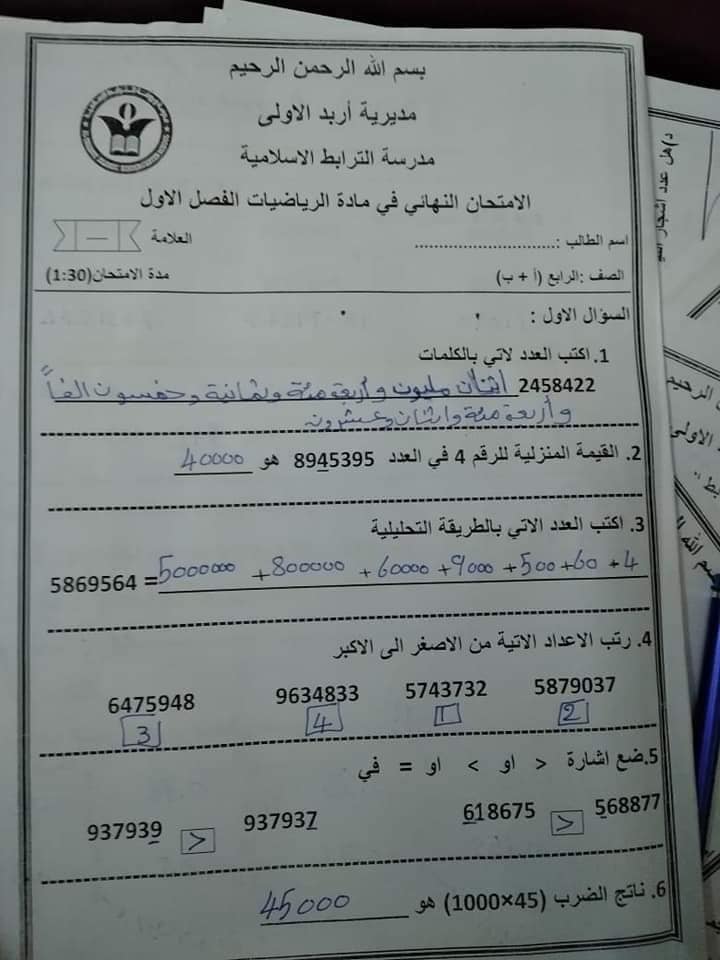 بسم الله الرحمن الرحيم
مديرية أربد الاولى
مدرسة الترابط الاسلامية
الامتحان النهائي في مادة الرياضيات الفصل الاول
اسم الطالب :........................ العلامة
الصف :الرابع (أ + ب) مدة الامتحان(1:30)
السؤال الاول :
1. اكتب العدد لاتي بالكلمات
2458422 اثنان مليون وأربعة مئة وثمانية وخمسون الفاً
وأربعة مئة واثنان وعشرون
2. القيمة المنزلية للرقم 4 في العدد 8945395 هو 40000
3. اكتب العدد الاتي بالطريقة التحليلية
5869564 = 5000000 + 800000 + 60000 + 9000 + 500 + 60 + 4
4. رتب الاعداد الاتية من الاصغر الى الاكبر
5879037 5743732 9634833 6475948
2 1 4 3
5.ضع اشارة > او < او = في
937939 > 937937 618675 > 568877
6. ناتج الضرب (45×1000) هو 45000
د)هل عدد اشجار
الرحيم
الاولى